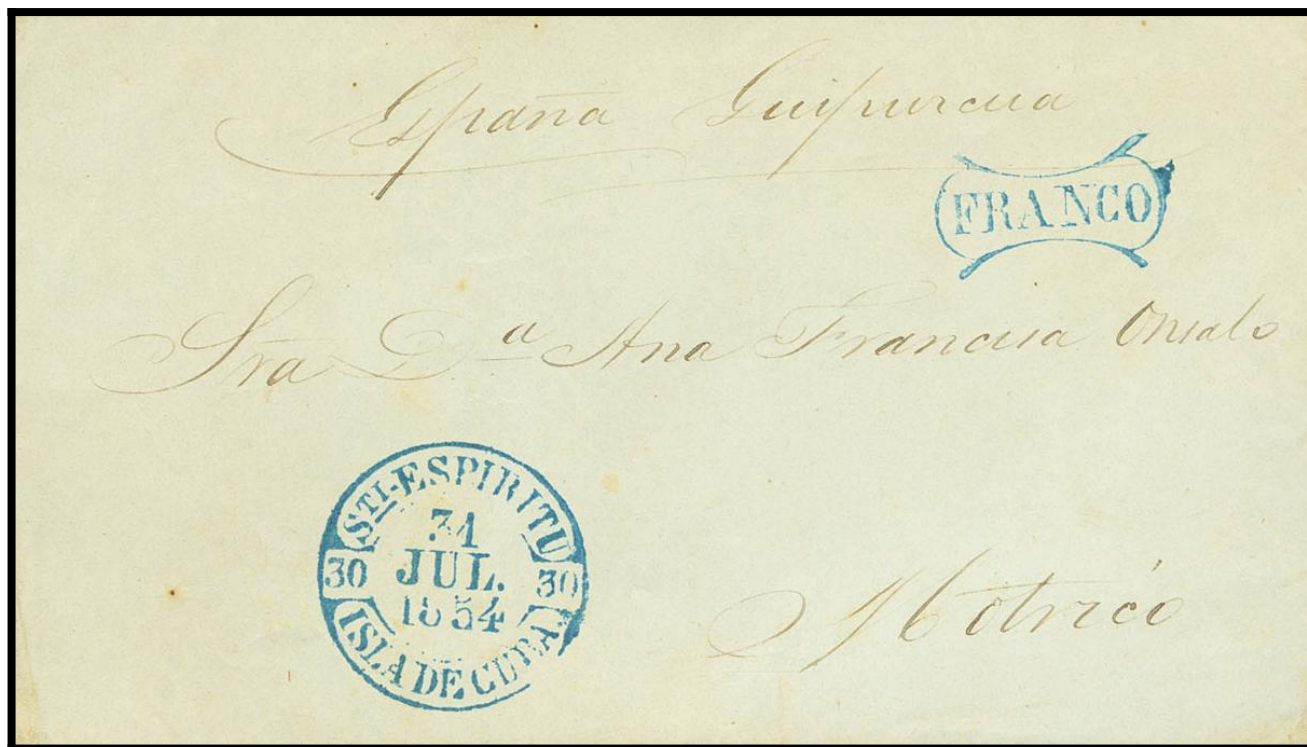 España Guipurcua
FRANCO
Sra Dª Ana Francisca
STI-ESPIRITU
31
JUL.
1854
30 30
ISLA DE CUBA
Motrico